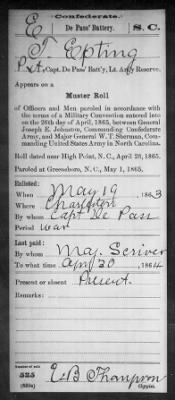 Confederate.
E De Pass' Battery. S. C.
T. Epting
Pvt, Capt. De Pass' Batt'y, Lt. Art'y Reserve.
Appears on a
Muster Roll
of Officers and Men paroled in accordance with the
terms of a Military Convention entered into
on the 26th day of April, 1865, between General
Joseph E. Johnston, Commanding Confederate
Army, and Major General W. T. Sherman, Com-
manding United States Army in North Carolina.
Roll dated near High Point, N. C., April 28, 1865.
Paroled at Greensboro, N. C., May 1, 1865.
Enlisted:
When May 19, 1863
Where Charleston
By whom Capt De Pass
Period war
Last paid:
By whom Maj. Scriven
To what time Apr 30, 1864
Present or absent Present.
Remarks:
Number of roll:
525
E. B. Thompson
Copyist.